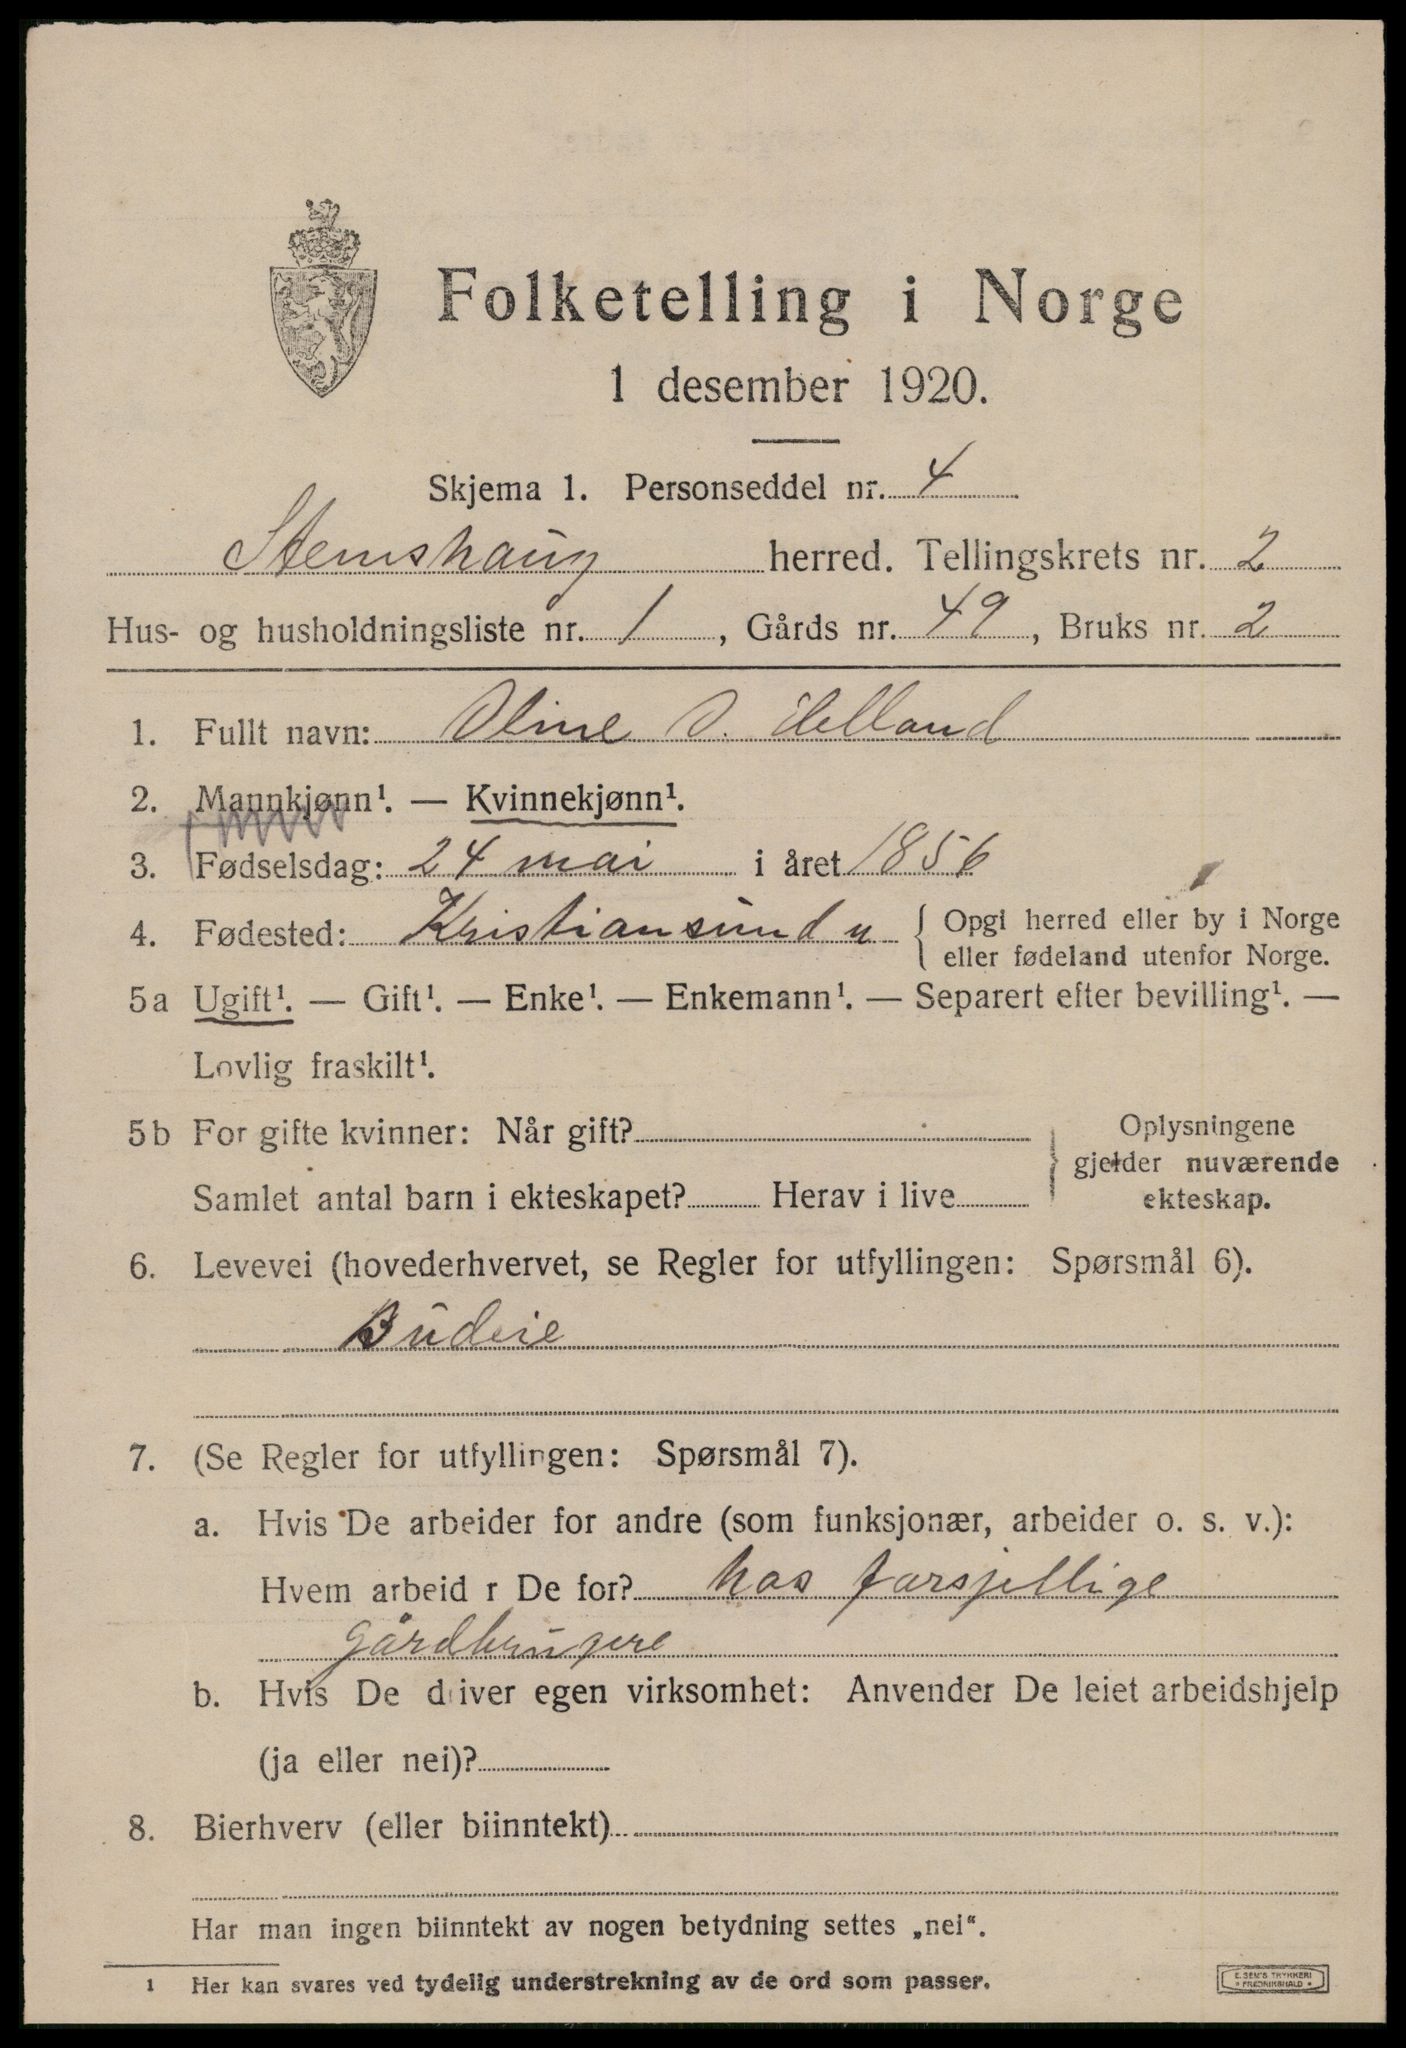 Folketelling i Norge
1 desember 1920.
Skjema 1. Personseddel nr. 4
Stemshaug herred. Tellingskrets nr. 2
Hus- og husholdningsliste nr. 1, Gårds nr. 49, Bruks nr. 2
1. Fullt navn: Oline O. Helland
2. Mannkjønn¹. — Kvinnekjønn¹.
3. Fødselsdag: 24 mai i året 1856
4. Fødested: Kristiansund n { Opgi herred eller by i Norge
eller fødeland utenfor Norge.
5a Ugift¹. — Gift¹. — Enke¹. — Enkemann¹. — Separert efter bevilling¹. —
Lovlig fraskilt¹.
5b For gifte kvinner: Når gift?
Samlet antal barn i ekteskapet? Herav i live
Oplysningene
gjelder nuværende
ekteskap.
6. Levevei (hovederhvervet, se Regler for utfyllingen: Spørsmål 6).
Budeie
7. (Se Regler for utfyllingen: Spørsmål 7).
a. Hvis De arbeider for andre (som funksjonær, arbeider o. s. v.):
Hvem arbeid r De for? hos forsjellige
gårdbrugere
b. Hvis De driver egen virksomhet: Anvender De leiet arbeidshjelp
(ja eller nei)?
8. Bierhverv (eller biinntekt)
Har man ingen biinntekt av nogen betydning settes „nei“.
1 Her kan svares ved tydelig understrekning av de ord som passer.
E. SEM'S TRYKKERI
FREDRIKSHALD